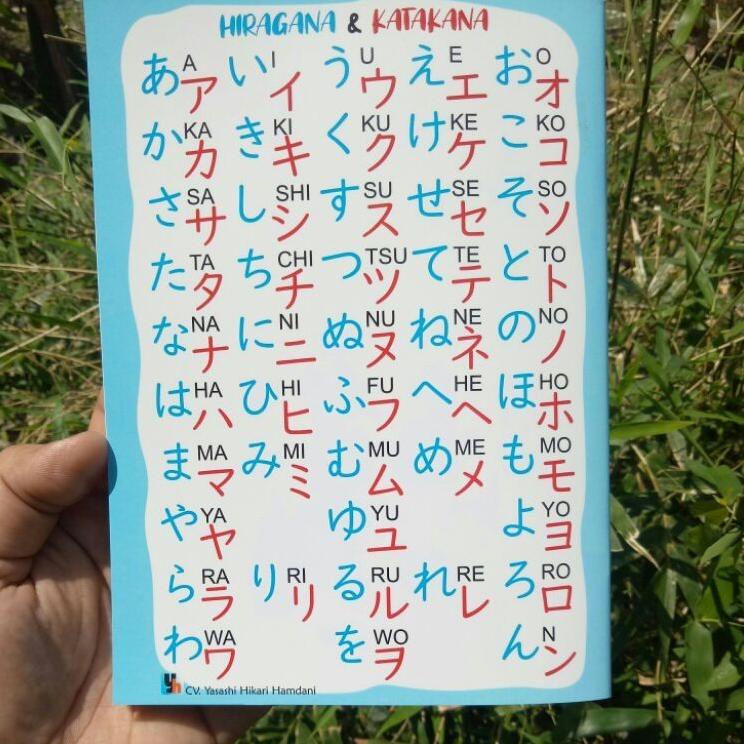 HIRAGANA & KATAKANA
あ A ア い I イ う U ウ え E エ お O オ
か KA カ き KI キ く KU ク け KE ケ こ KO コ
さ SA サ し SHI シ す SU ス せ SE セ そ SO ソ
た TA タ ち CHI チ つ TSU ツ て TE テ と TO ト
な NA ナ に NI ニ ぬ NU ヌ ね NE ネ の NO ノ
は HA ハ ひ HI ヒ ふ FU フ へ HE ヘ ほ HO ホ
ま MA マ み MI ミ む MU ム め ME メ も MO モ
や YA ヤ ゆ YU ユ よ YO ヨ
ら RA ラ り RI リ る RU ル れ RE レ ろ RO ロ
わ WA ワ を WO ヲ ん N ン
Yh CV. Yasashi Hikari Hamdani